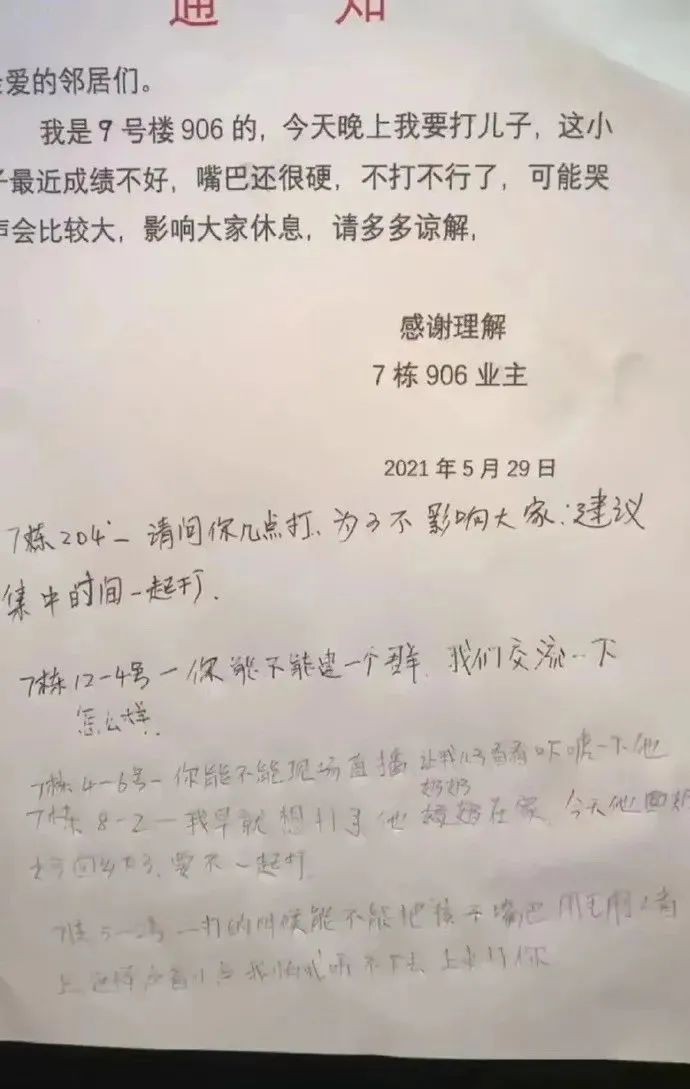 通知
爱的邻居们。
我是9号楼906的，今天晚上我要打儿子，这小
子最近成绩不好，嘴巴还很硬，不打不行了，可能哭
声会比较大，影响大家休息，请多多谅解，
感谢理解
7栋906业主
2021年5月29日
7栋204-请问你几点打、为了不影响大家:建议
集中时间一起打.
7栋12-4号-你能不能建一个群.我们交流一下
怎么样.
7栋4-6号-你能不能现场直播让我儿子看看吓唬一下他
奶奶
7栋8-2-我早就想打了他 在家.今天他
回 了.要不一起打.
7栋 号-打的时候能不能把孩子嘴巴用毛巾
上 我怕我听不下去上来打你